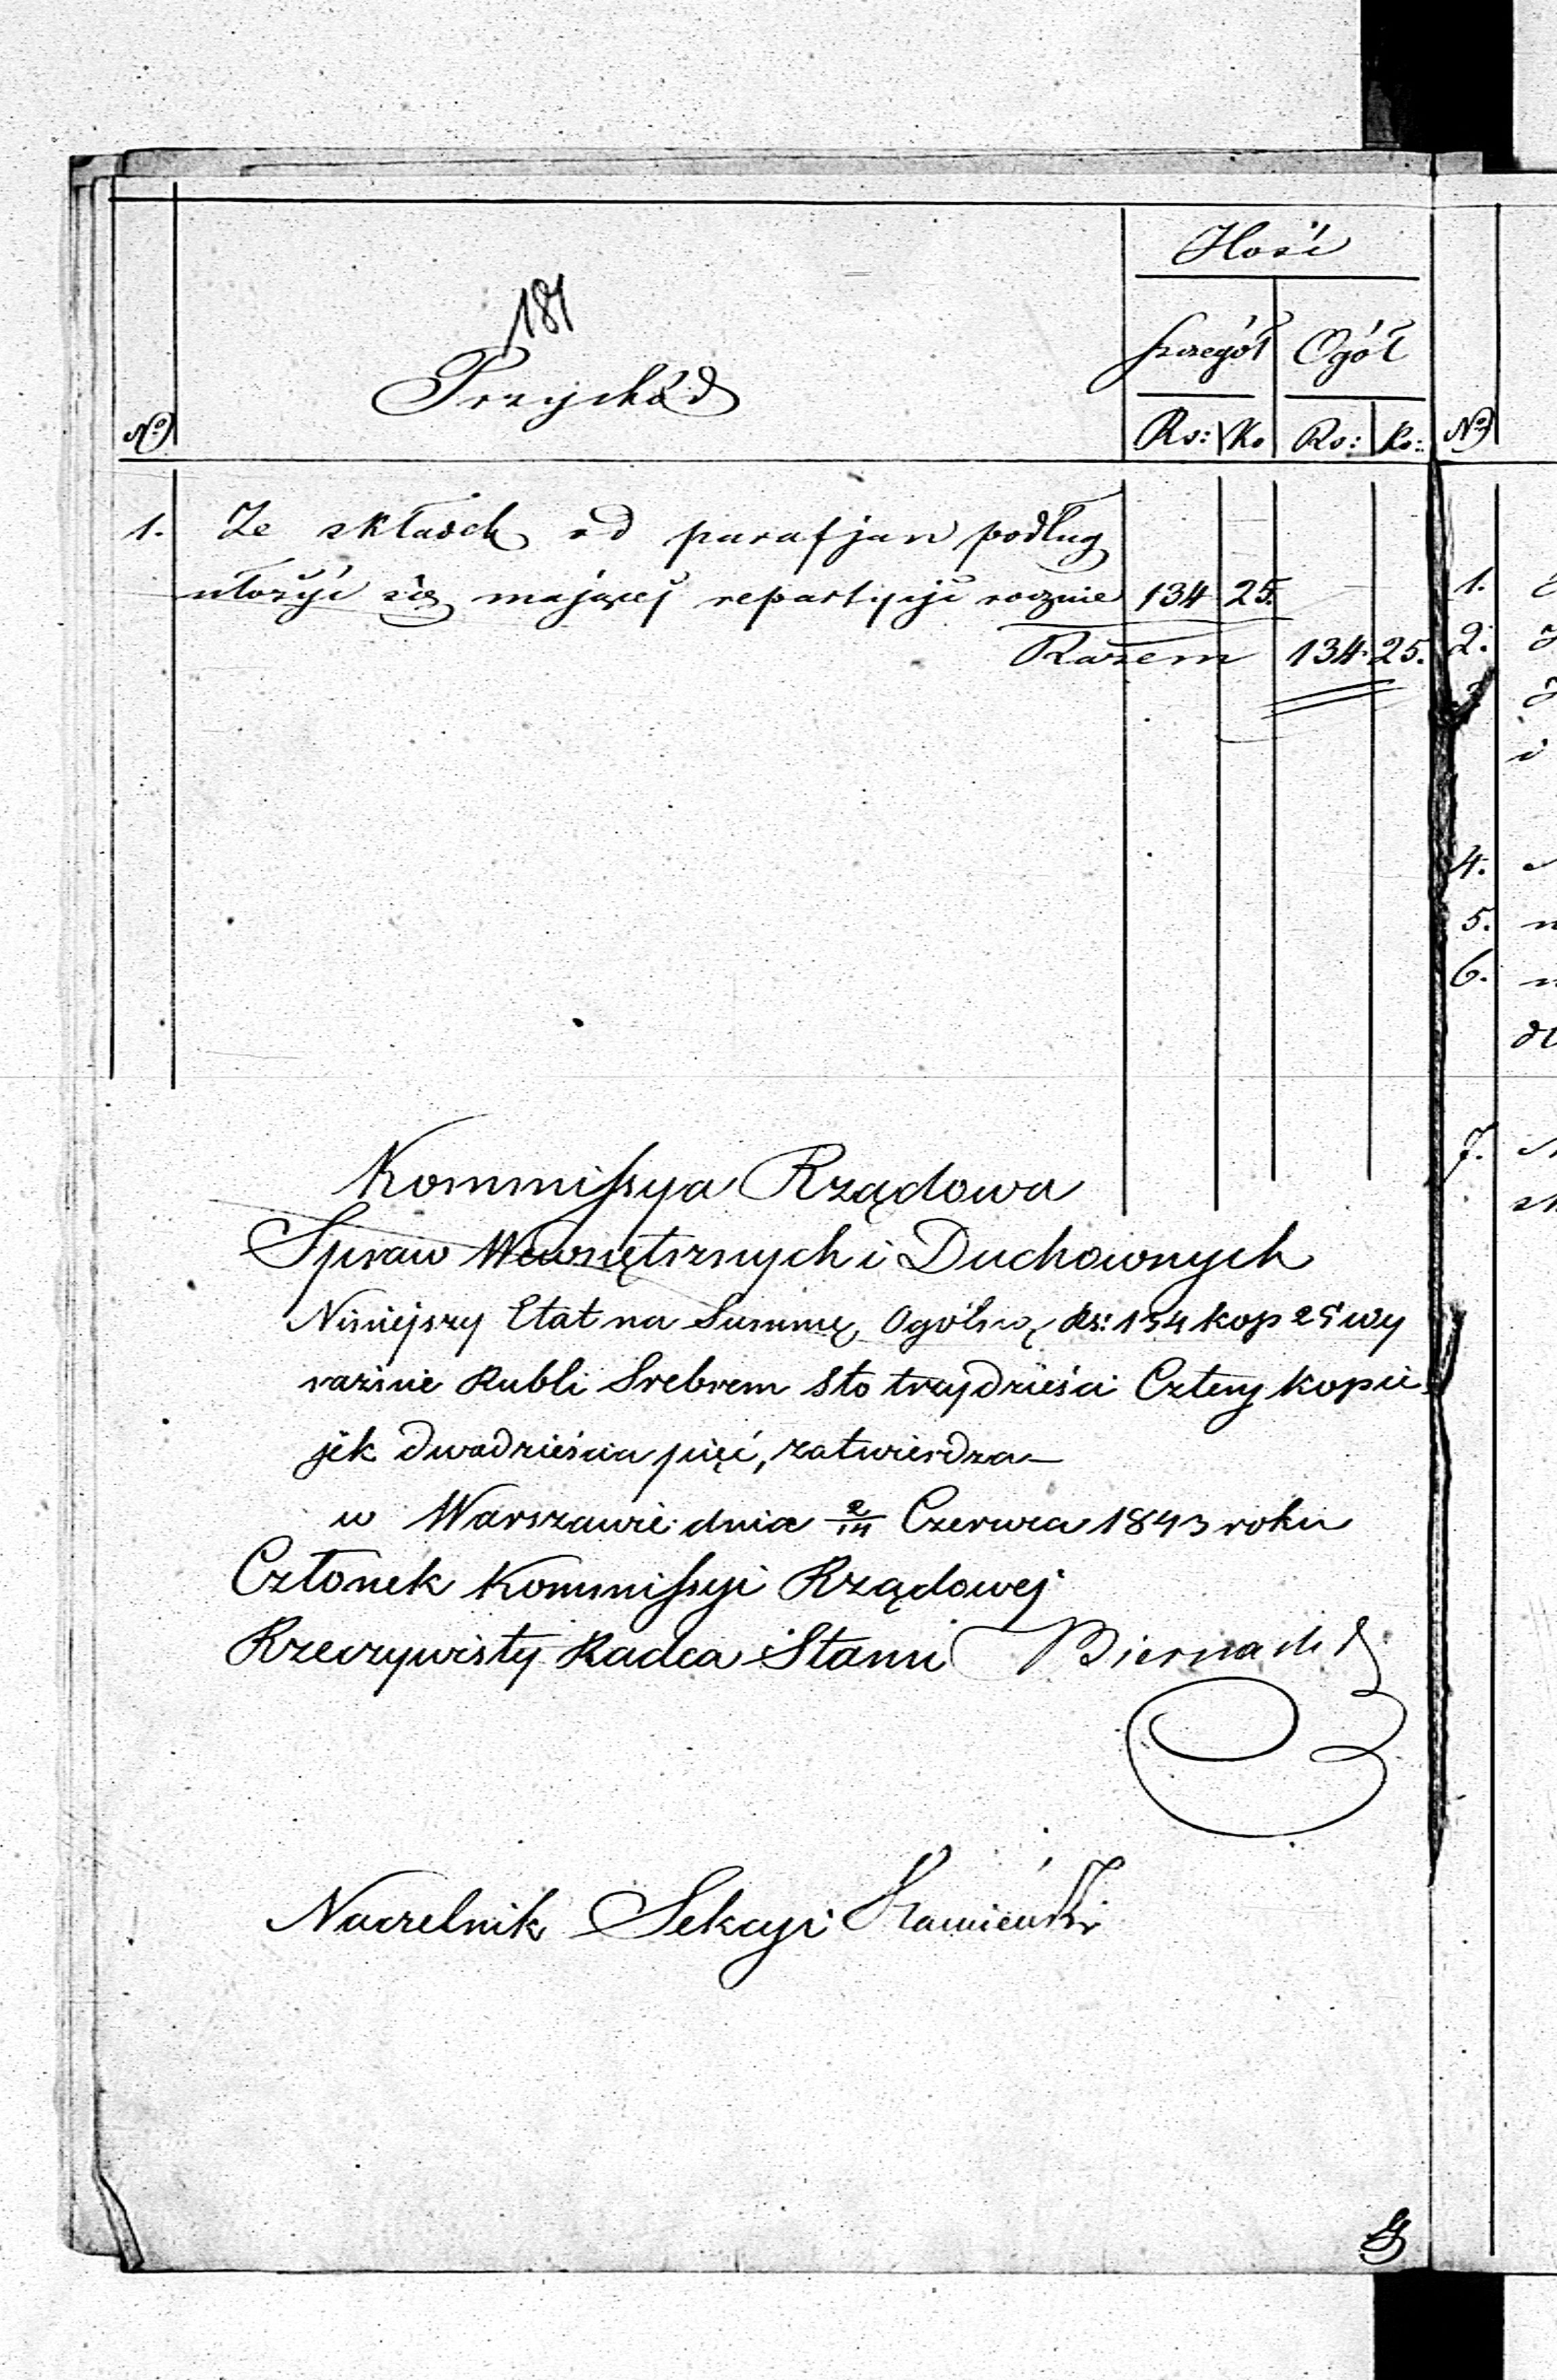 181
Ilość
Przychód
Szczegół Ogół
No Rs: Ko Rs: Ko: No
1. Ze składek od parafjan podług
ułożyć się mającej repartycji rocznie 134 25.
Razem 134 25.
Kommissya Rządowa
Spraw Wewnętrznych i Duchownych
Niniejszy Etat na Summę Ogólną Rs: 134 kop 25 wy
raźnie Rubli Srebrem Sto trzydzieści Cztery kopie
jek dwadzieścia pięć, zatwierdza
w Warszawie dnia 2/14 Czerwca 1843 roku
Członek Kommissyi Rządowej
Rzeczywisty Radca Stanu Biernacki
Naczelnik Sekcyi Kamieński
1.
2.
3
i
4.
5.
6.
7.